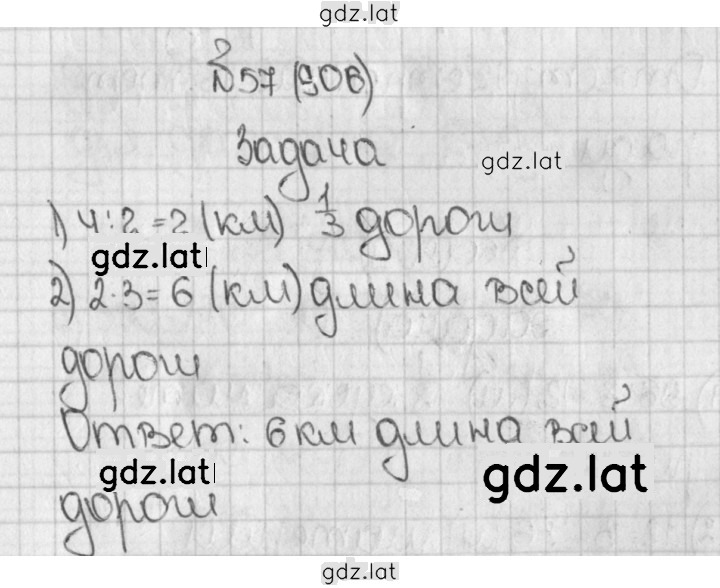 gdz.lat
№57 (906)
Задача
gdz.lat
1) 4:2=2 (км) 1/3 дороги
gdz.lat
2) 2·3=6 (км) длина всей
дороги
Ответ: 6 км длина всей
gdz.lat
gdz.lat
дороги
gdz.lat